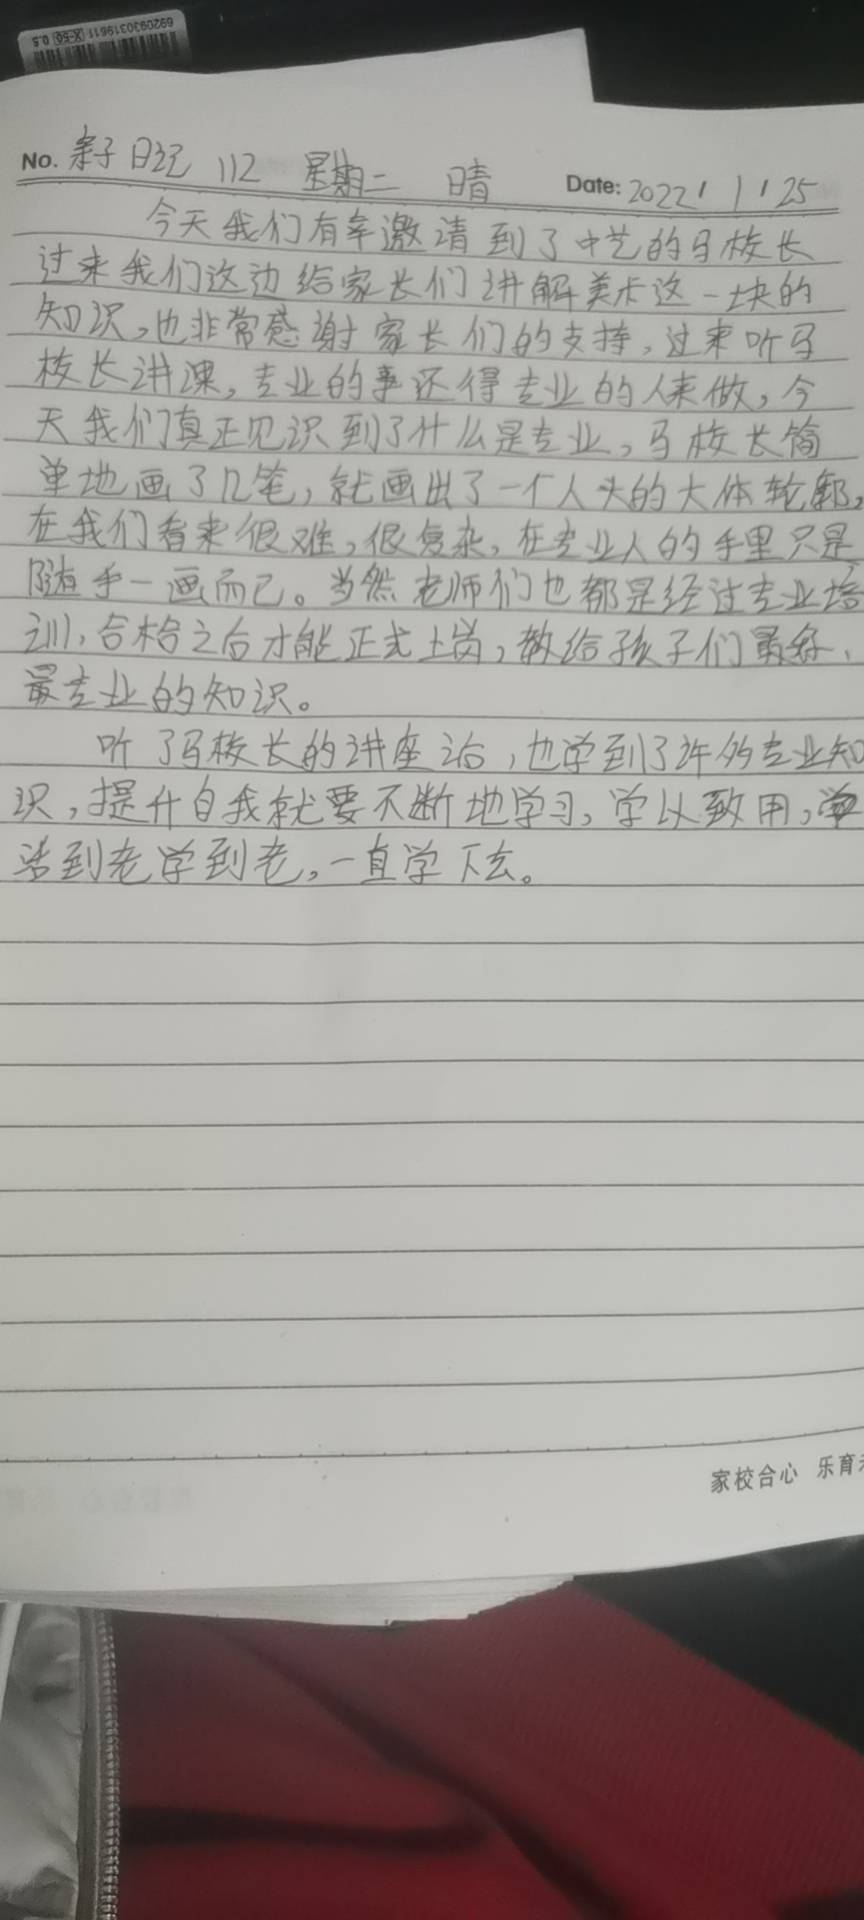 6920930319611 X-50 0.5
No. 亲子日记 112 星期二 晴 Date: 2022 1 25
今天我们有幸邀请到了中艺的马校长
过来我们这边给家长们讲解美术这一块的
知识,也非常感谢家长们的支持,过来听马
校长讲课,专业的事还得专业的人来做,今
天我们真正见识到了什么是专业,马校长简
单地画了几笔,就画出了一个人头的大体轮郭,
在我们看来很难,很复杂,在专业人的手里只是
随手一画而已。当然老师们也都是经过专业培
训,合格之后才能正式上岗,教给孩子们最好、
最专业的知识。
听了马校长的讲座后,也学到了许多专业知
识,提升自我就要不断地学习,学以致用,
活到老学到老,一直学下去。
家校合心 乐育